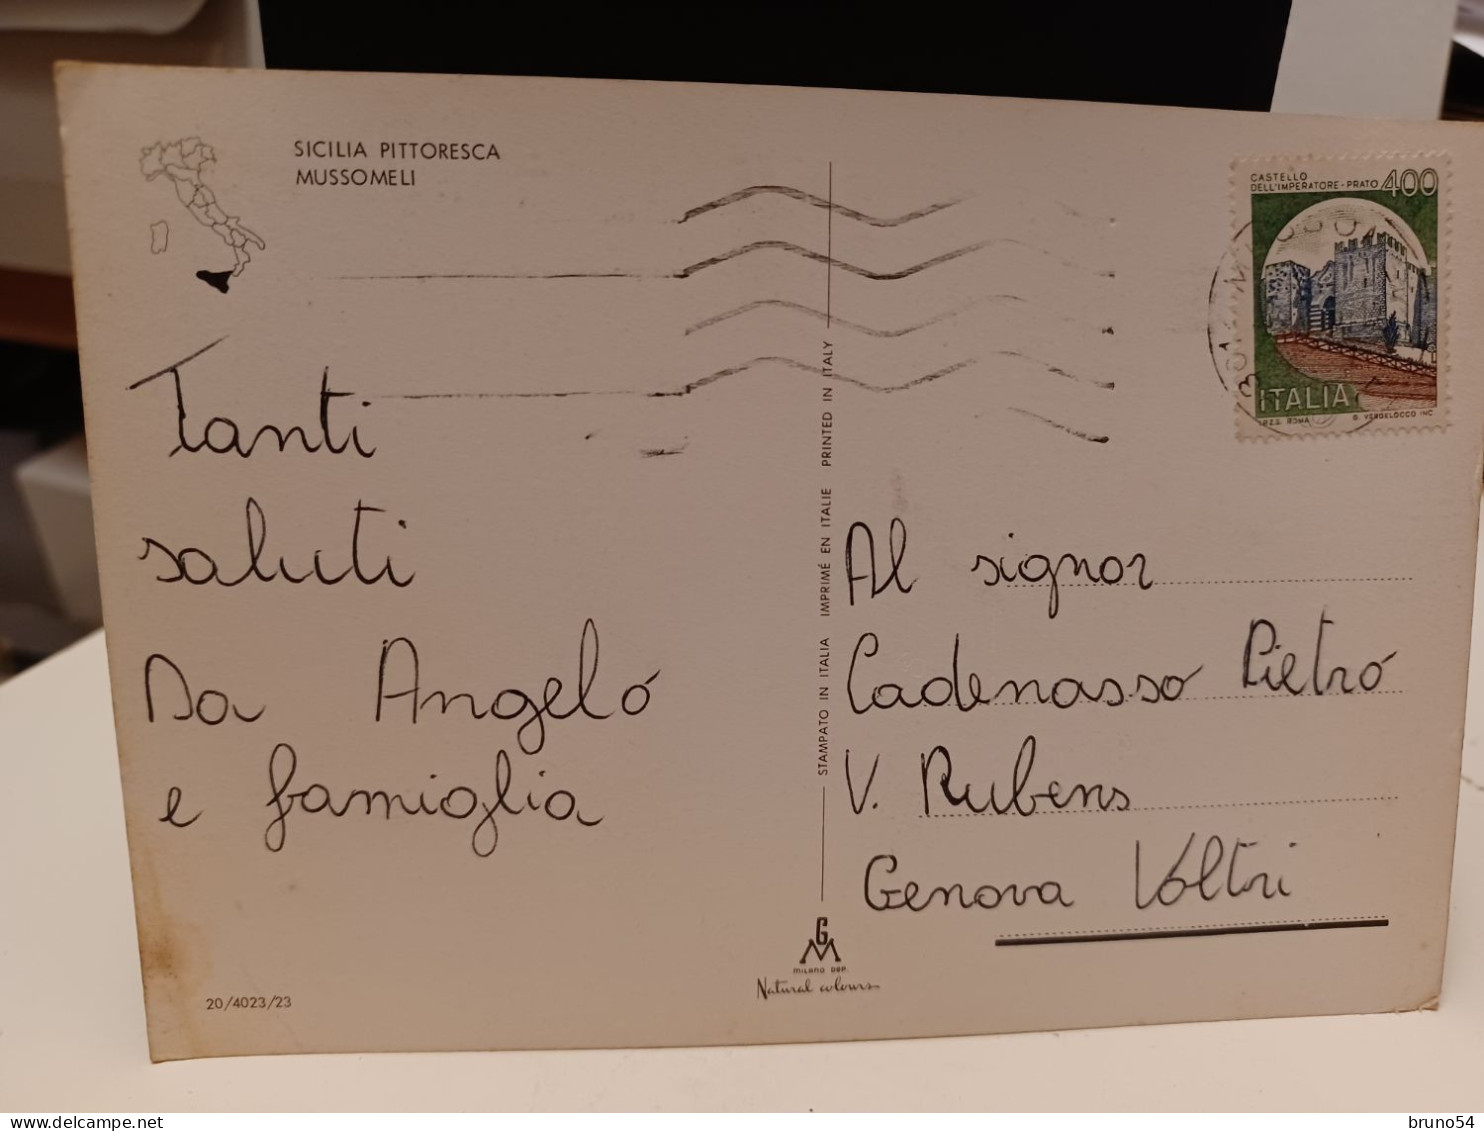 SICILIA PITTORESCA
MUSSOMELI
CASTELLO
DELL'IMPERATORE - PRATO 400
ITALIA
I.P.Z.S. ROMA B. VERDELOCCO INC.
Tanti
saluti
Da Angelo
e famiglia
STAMPATO IN ITALIA IMPRIMÉ EN ITALIE PRINTED IN ITALY
Al signor
Cadenasso Pietro
V. Rubens
Genova Voltri
GM
MILANO DEP.
Natural colours
20/4023/23
delcampe.net
bruno54